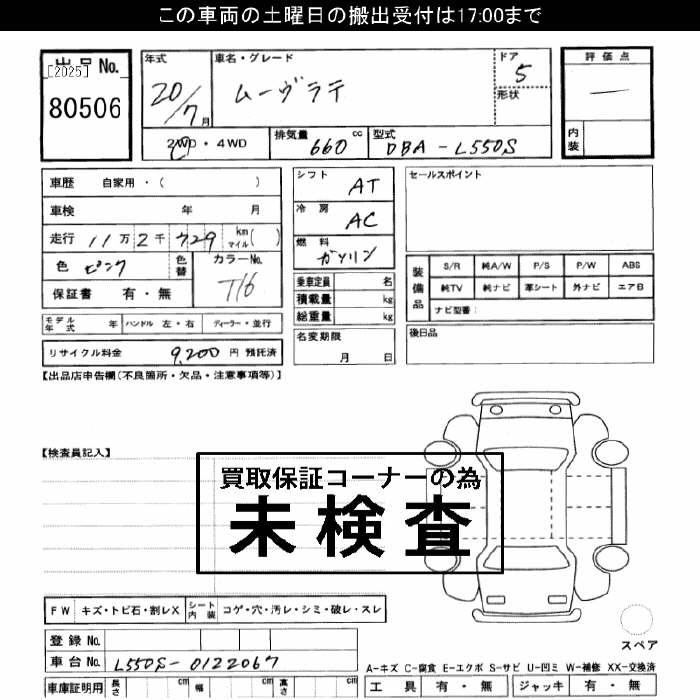 この車両の土曜日の搬出受付は17:00まで
出品 No.
[2025]
80506
年式
20/7 月
車名・グレード
ムーヴラテ
ドア
5
形状
2WD・4WD
排気量 660 cc
型式 DBA-L550S
評価点
—
内装
車歴 自家用・( )
車検 年 月
走行 11万2千729 km マイル( )
色 ピンク
色替
カラーNo.
T16
保証書 有・無
モデル年式 年
ハンドル 左・右
ディーラー・並行
リサイクル料金 9,200 円 預託済
シフト AT
冷房 AC
燃料 ガソリン
乗車定員 名
積載量 kg
総重量 kg
名変期限
月 日
セールスポイント
装備品
S/R 純A/W P/S P/W ABS
純TV 純ナビ 革シート 外ナビ エアB
ナビ型番:
後日品
【出品店申告欄(不良箇所・欠品・注意事項等)】
【検査員記入】
買取保証コーナーの為
未検査
FW キズ・トビ石・割レX
シート内装 コゲ・穴・汚レ・シミ・破レ・スレ
登録 No.
車台 No. L550S-0122067
車庫証明用 長さ cm 幅 cm 高さ cm
スペア
A-キズ C-腐食 E-エクボ S-サビ U-凹ミ W-補修 XX-交換済
工具 有・無 ジャッキ 有・無